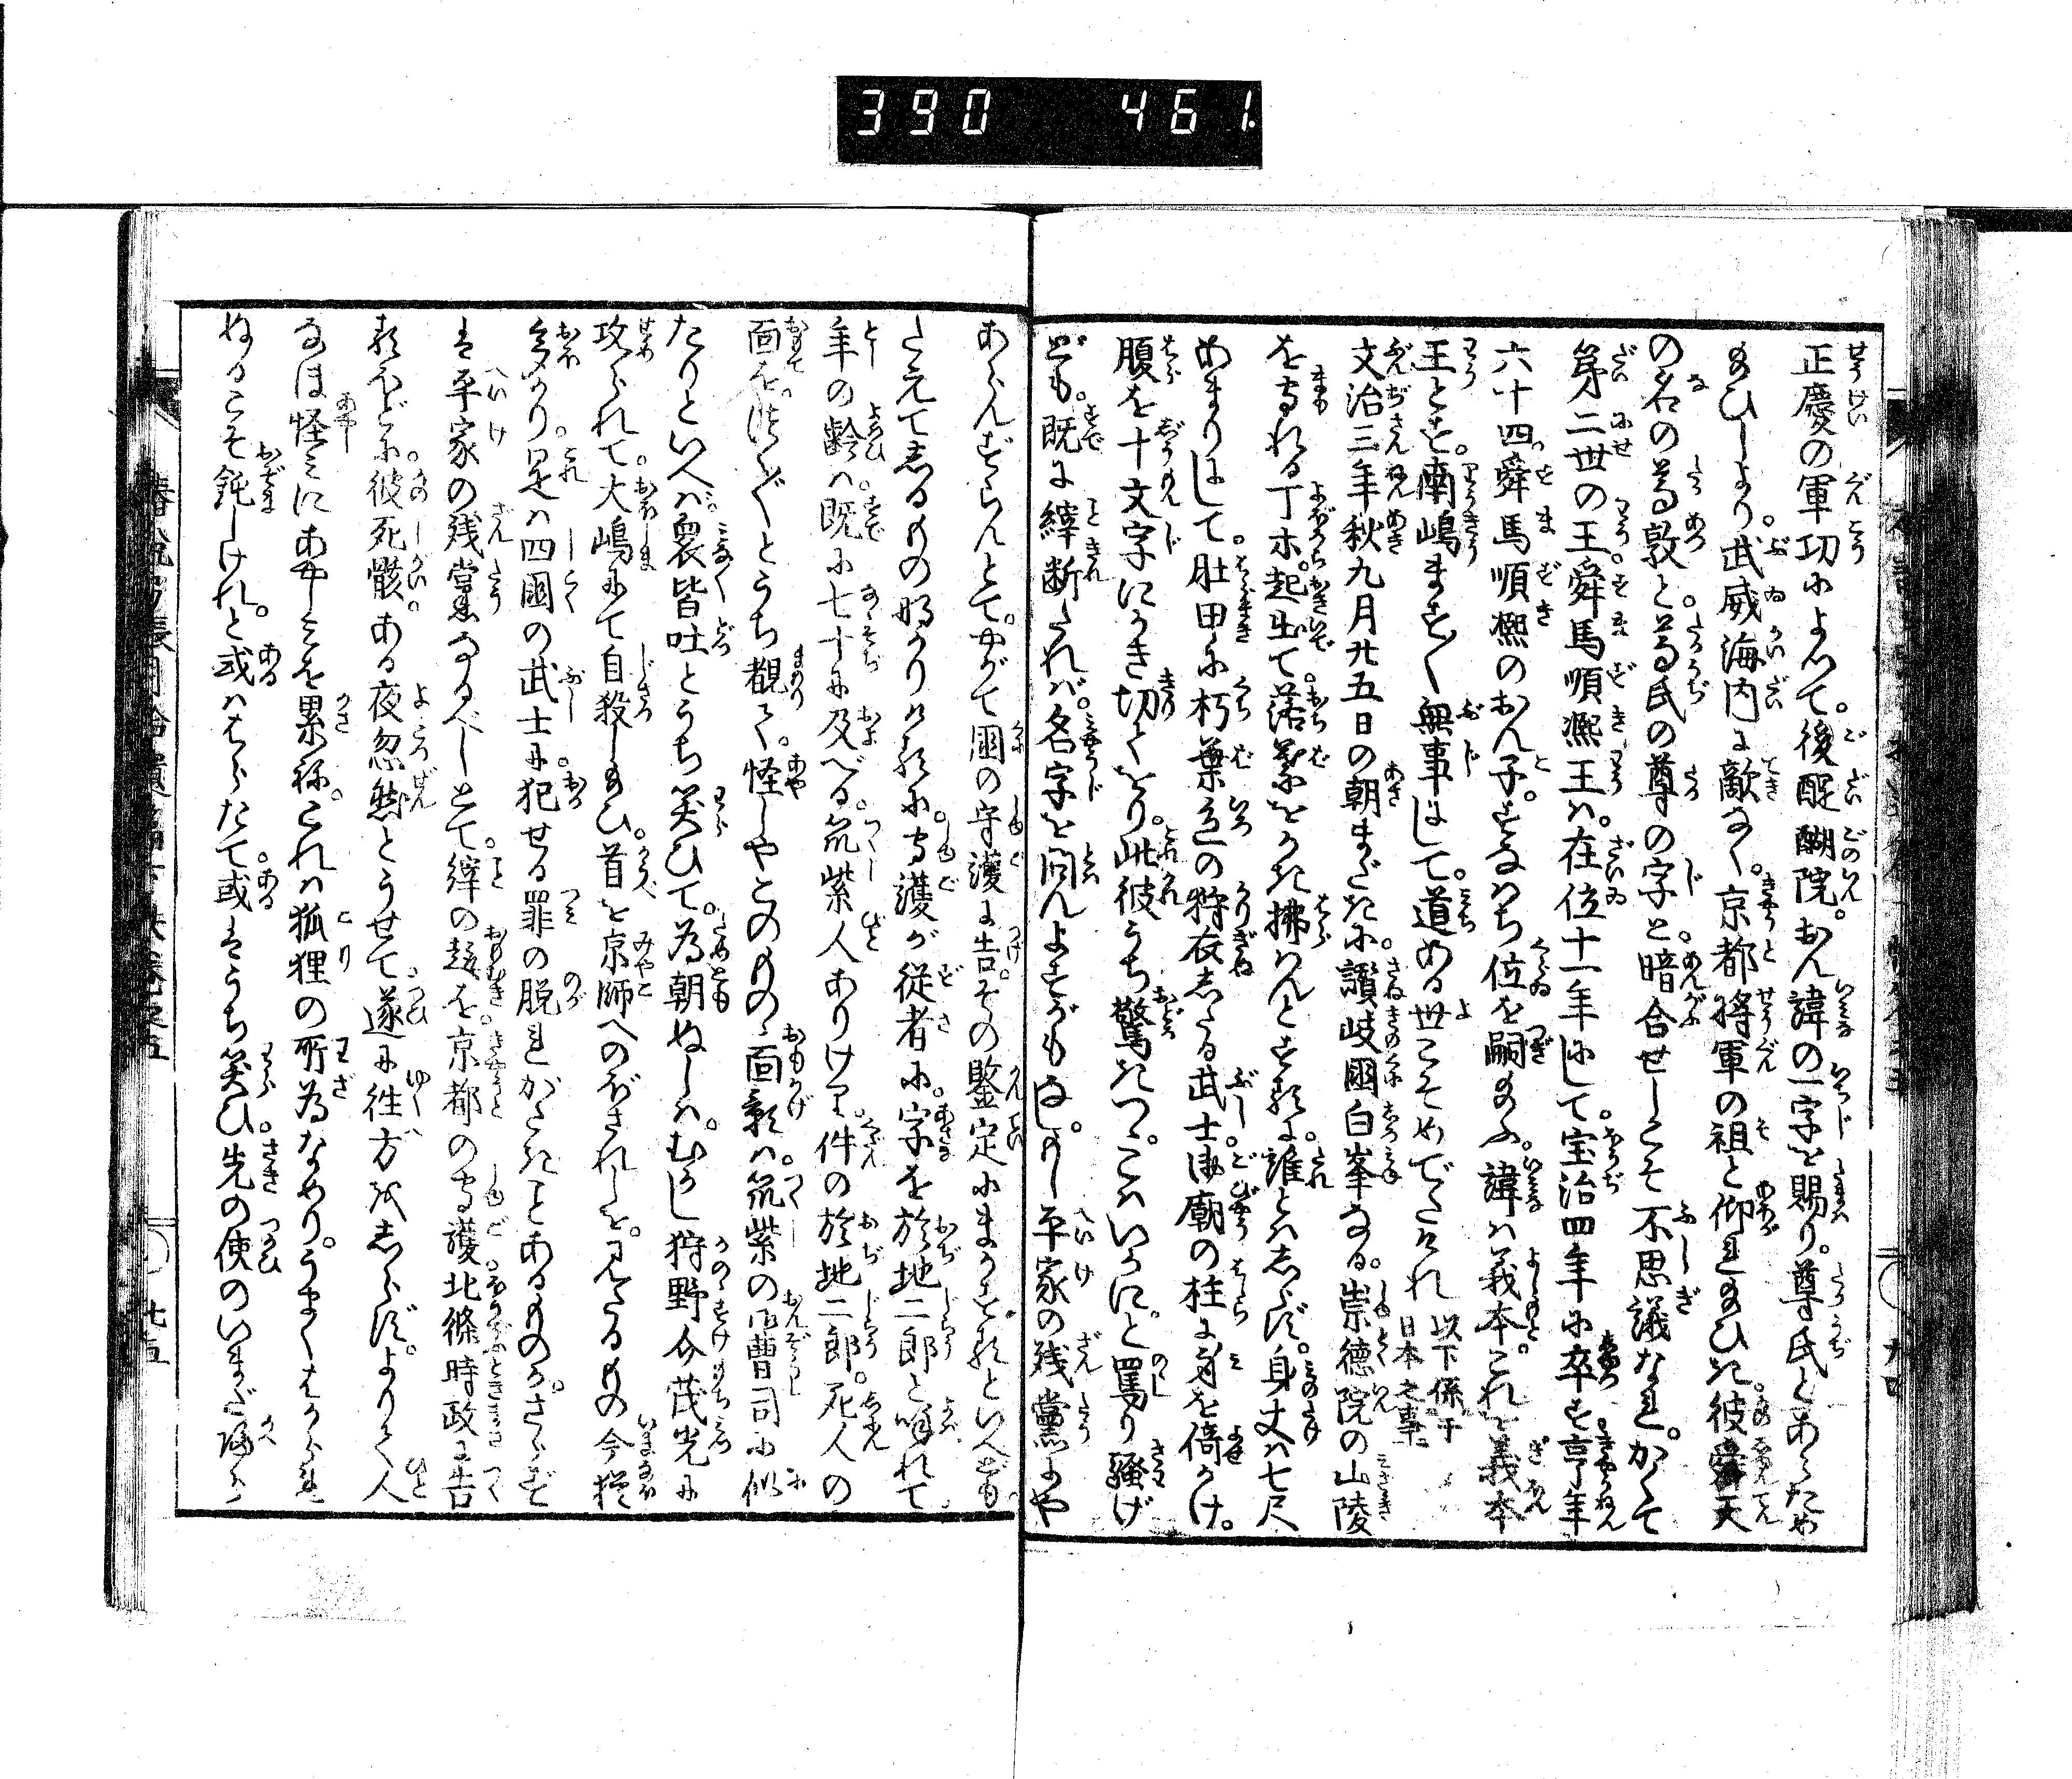 390 461.
正慶の軍功によつて。後醍醐院。おん諱の一字を賜り。尊氏とあらため
給ひしより。武威海内に敵なく。京都将軍の祖と仰れ給ひき。彼舜天
の名の尊敦と。尊氏の尊の字と。暗合せしこそ不思議なれ。かくて
第二世の王。舜馬順煕王は。在位十一年にして。宝治四年に卒す。享年
六十四。舜馬順煕のおん子。すなはち位を嗣給ふ。諱は義本。これを義本
王とす。南嶋ます〱無事にして。道ある世こそめでたけれ 以下係于日本之事
文治三年秋九月廿五日の朝まだきに。讃岐國白峯なる。崇徳院の山陵
を守れる丁ホ。起出て。落葉をかき拂はんとするに。誰とはしらず。身丈は七尺
あまりにして。肚甲に朽葉色の狩衣きたる武士。御廟の柱に身を倚かけ。
腹を十文字にかき切てをり。此彼うち驚きつ。こはいかに。と罵り騒げ
ども。既に縡断たれば。名字を問んよすがもなし。もし平家の残黨にや
あらんずらんとて。やがて國の守護に告。その鑒定にまかするといへども
たえてしるものなかりけるに。守護が従者に。字を於地二郎と呼れて
年の齢は既に七十に及べる。筑紫人ありけり。件の於地二郎。死人の
面を。つく〲とうち観て。怪しやこのものゝ面影は。筑紫の御曹司に似
たりといへば。衆皆吐とうち笑ひて。為朝ぬしは。むかし狩野介茂光に
攻られて。大嶋にて自殺し給ひ。首を京師へのぼされしを。見たるもの今猶
多かり。是は四國の武士に。犯せる罪の脱れがたきことあるものか。さらずば
平家の残黨なるべしとて。縡の趣を京都の守護北條時政に告
るほどに。彼死骸。ある夜忽然とうせて遂に往方をしらず。よりて人
なほ怪みにあやしみを累ね。これは狐狸の所為なめり。うまくはかられ
ぬるこそ鈍しけれ。と或ははらたて。或はうち笑ひ。先の使のいまだ帰ら